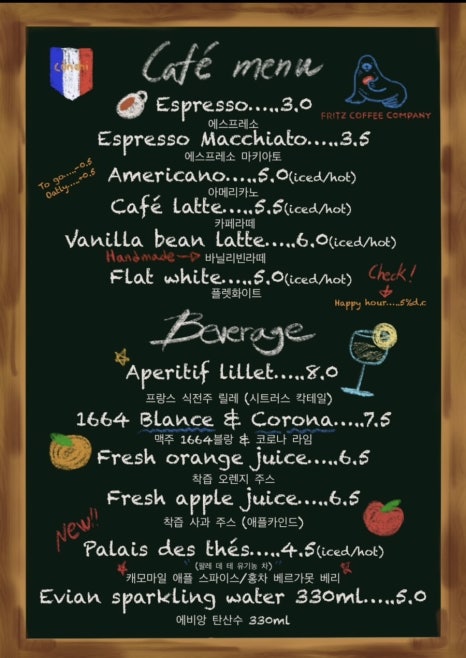 canoni
Café menu
FRITZ COFFEE COMPANY
Espresso.....3.0
에스프레소
Espresso Macchiato.....3.5
에스프레소 마키아토
To go.....-0.5
Americano.....5.0(iced/hot)
아메리카노
Café latte.....5.5(iced/hot)
카페라떼
Vanilla bean latte.....6.0(iced/hot)
Handmade → 바닐리빈라떼
Flat white.....5.0(iced/hot)
플렛화이트
Check!
Happy hour.....5%d.c
Beverage
Aperitif lillet.....8.0
프랑스 식전주 릴레 (시트러스 칵테일)
1664 Blance & Corona.....7.5
맥주 1664블랑 & 코로나 라임
Fresh orange juice.....6.5
착즙 오렌지 주스
Fresh apple juice.....6.5
착즙 사과 주스 (애플카인드)
New!!
Palais des thés.....4.5(iced/hot)
(팔레 데 테 유기농 차)
캐모마일 애플 스파이스/홍차 베르가못 베리
Evian sparkling water 330ml.....5.0
에비앙 탄산수 330ml